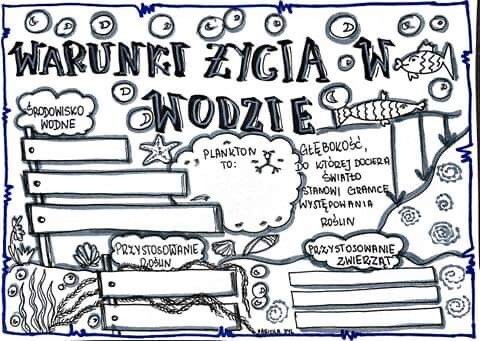 WARUNKI ŻYCIA W
WODZIE
ŚRODOWISKO
WODNE
PLANKTON
TO:
GŁĘBOKOŚĆ,
DO KTÓREJ DOCIERA
ŚWIATŁO
STANOWI GRANICĘ
WYSTĘPOWANIA
ROŚLIN
PRZYSTOSOWANIE
ROŚLIN
PRZYSTOSOWANIE
ZWIERZĄT